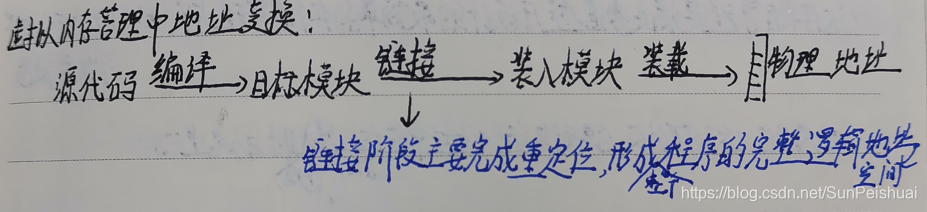 对从内存管理中地址变换:
源代码 编译→目标模块 链接→装入模块 装载→物理地址
↓
链接阶段主要完成重定位,形成整个程序的完整逻辑地址空间
https://blog.csdn.net/SunPeishuai